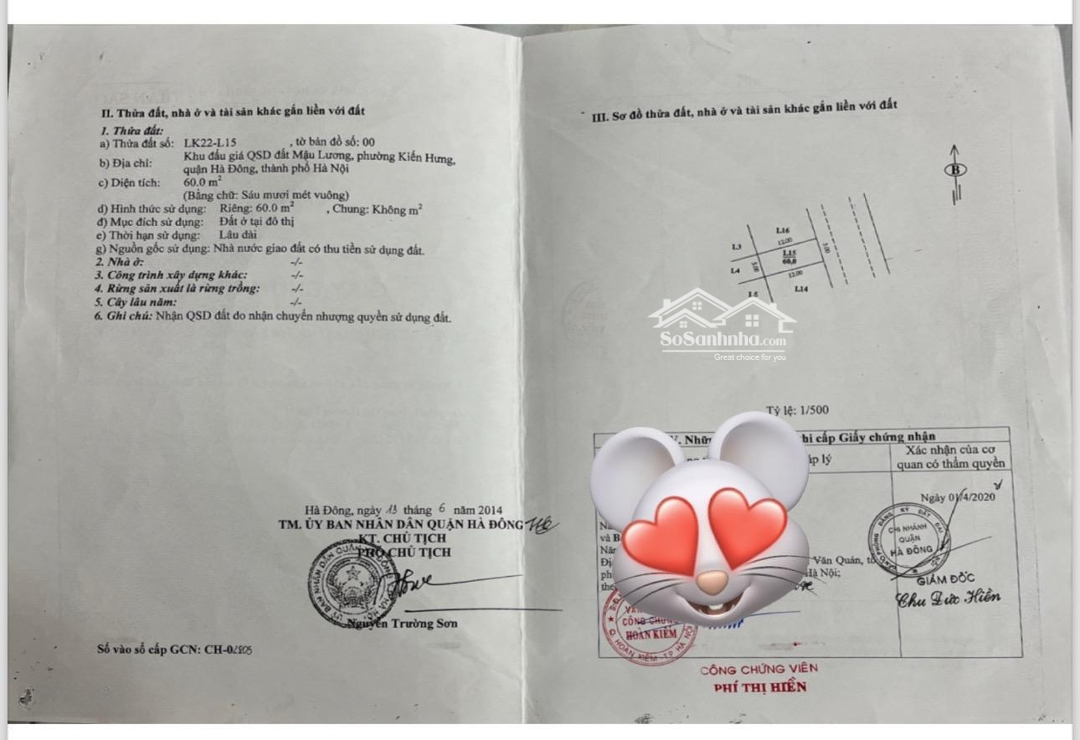 II. Thửa đất, nhà ở và tài sản khác gắn liền với đất
1. Thửa đất:
a) Thửa đất số: LK22-L15 , tờ bản đồ số: 00
b) Địa chỉ: Khu đấu giá QSD đất Mậu Lương, phường Kiến Hưng,
quận Hà Đông, thành phố Hà Nội
c) Diện tích: 60.0 m²
(Bằng chữ: Sáu mươi mét vuông)
d) Hình thức sử dụng: Riêng: 60.0 m² , Chung: Không m²
đ) Mục đích sử dụng: Đất ở tại đô thị
e) Thời hạn sử dụng: Lâu dài
g) Nguồn gốc sử dụng: Nhà nước giao đất có thu tiền sử dụng đất.
2. Nhà ở: -/-
3. Công trình xây dựng khác: -/-
4. Rừng sản xuất là rừng trồng: -/-
5. Cây lâu năm: -/-
6. Ghi chú: Nhận QSD đất do nhận chuyển nhượng quyền sử dụng đất.
Hà Đông, ngày 13 tháng 6 năm 2014
TM. ỦY BAN NHÂN DÂN QUẬN HÀ ĐÔNG
KT. CHỦ TỊCH
PHÓ CHỦ TỊCH
Nguyễn Trường Sơn
Số vào sổ cấp GCN: CH-0
III. Sơ đồ thửa đất, nhà ở và tài sản khác gắn liền với đất
B
L16
L3
12,00
L15
60,0
5,00
L4
5,00
12,00
L14
L5
SoSanhnha.com
Great choice for you
Tỷ lệ: 1/500
V. Nhữ hi cấp Giấy chứng nhận
áp lý
Xác nhận của cơ
quan có thẩm quyền
Ngày 01/4/2020
CHI NHÁNH
QUẬN
HÀ ĐÔNG
và B
Năm
Văn Quán,
Hà Nội;
GIÁM ĐỐC
Chu Đức Hiền
CÔNG CHỨNG
HOÀN KIẾM
Q. HOÀN KIẾM - T.P HÀ NỘI
CÔNG CHỨNG VIÊN
PHÍ THỊ HIỀN